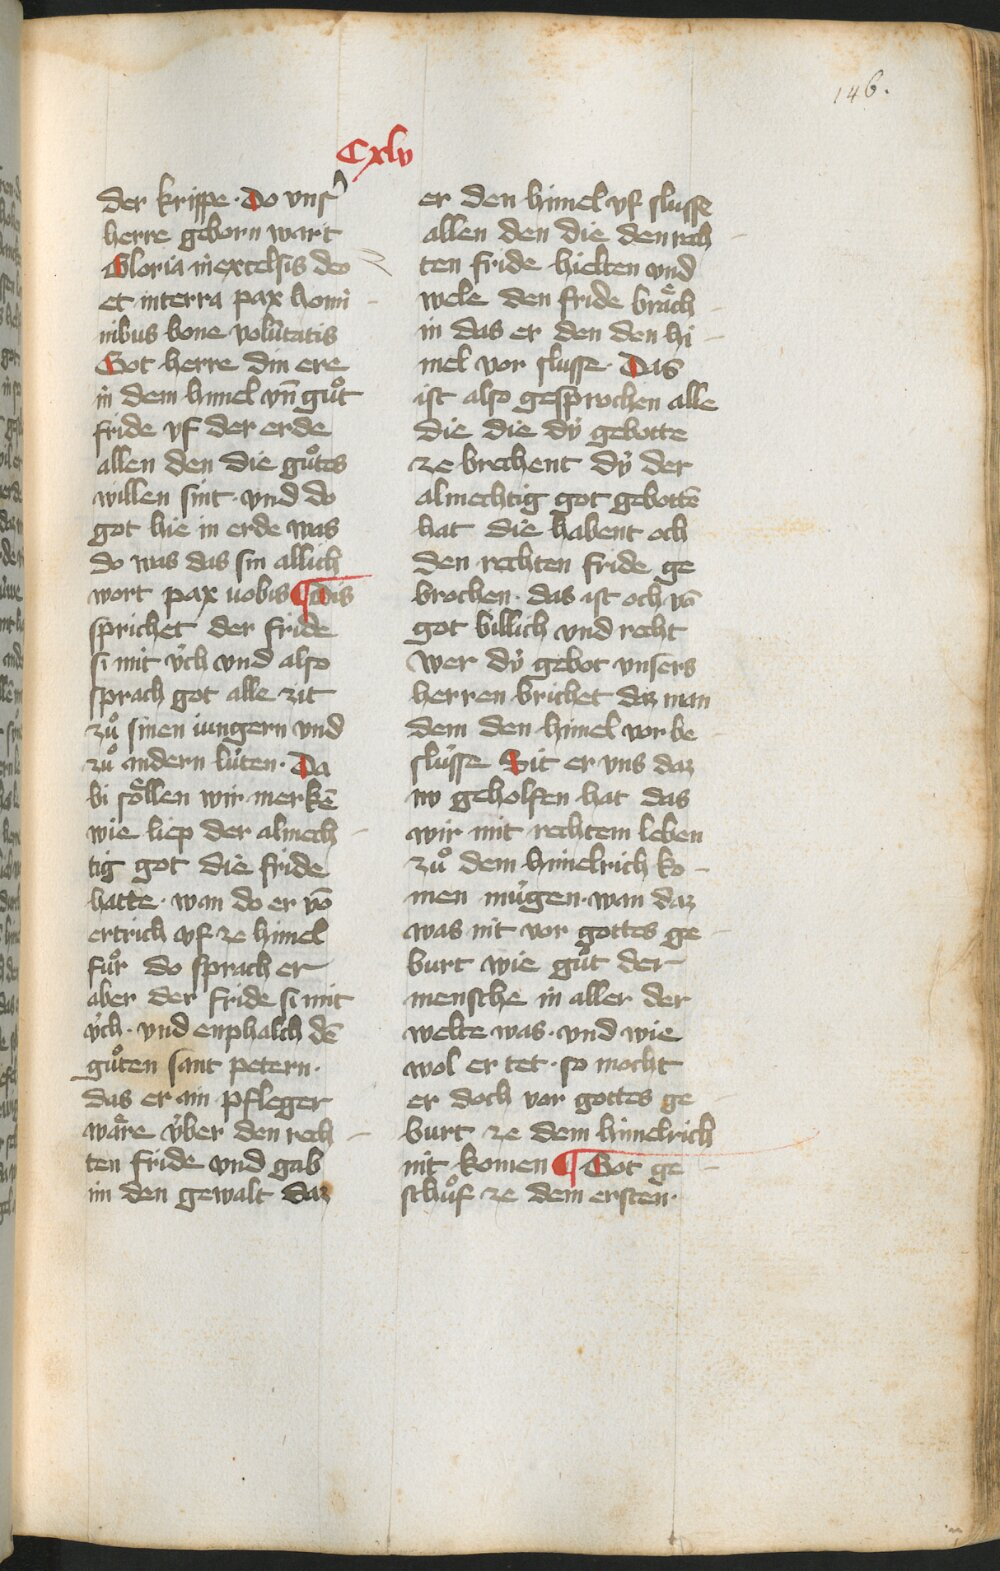 146.
Cxlv
der krippe · Do vnsˀ
herre geborn wart
Gloria in excelsis deo
et in terra pax homi
nibus bone volūtatis
Got herre din ere
in dem himel vn̄ guͦt
fride vf der erde
allen den die guͦtes
willen sint · vnd do
got hie in erde was
do was das sin allich
wort pax uobis ¶ Dis
sprichet der fride
si mit v́ch vnd also
sprach got alle zit
zuͦ sinen iungern vnd
zuͦ andern lúten · Da
bi soͤllen wir merkē
wie liep der almech
tig got die fride
hatte · wan do er vō
ertrich vf ze himel
fuͦr do sprach er
aber der fride si mit
v́ch · vnd enphalch dē
guͦten sant petern ·
das er ain pfleger
waͤre v́ber den rech
ten fride vnd gab
im den gewalt daz
er den himel vf slusse
allen den die den rech
ten fride hielten vnd
wele den fride braͤch
in das er den den hi
mel vor slusse · Das
ist also gesprochen alle
die die dÿ gebotte
ze brechent dÿ der
almechtig got gebottē
hat die habent och
den rechten fride ge
brochen · das ist och vō
got billich vnd recht
wer dÿ gebot vnsers
herren brichet daz man
dem den himel vor be
slússe Sit er vns daz
nv geholfen hat das
wir mit rechtem leben
zuͦ dem himelrich ko
men múgen · wan daz
was nit vor gottes ge
burt wie guͦt der
mensche in aller der
welte was · vnd wie
wol er tet · so mocht
er doch vor gottes ge
burt ze dem himelrich
nit komen ¶ Got ge
schuͦf ze dem ersten ·